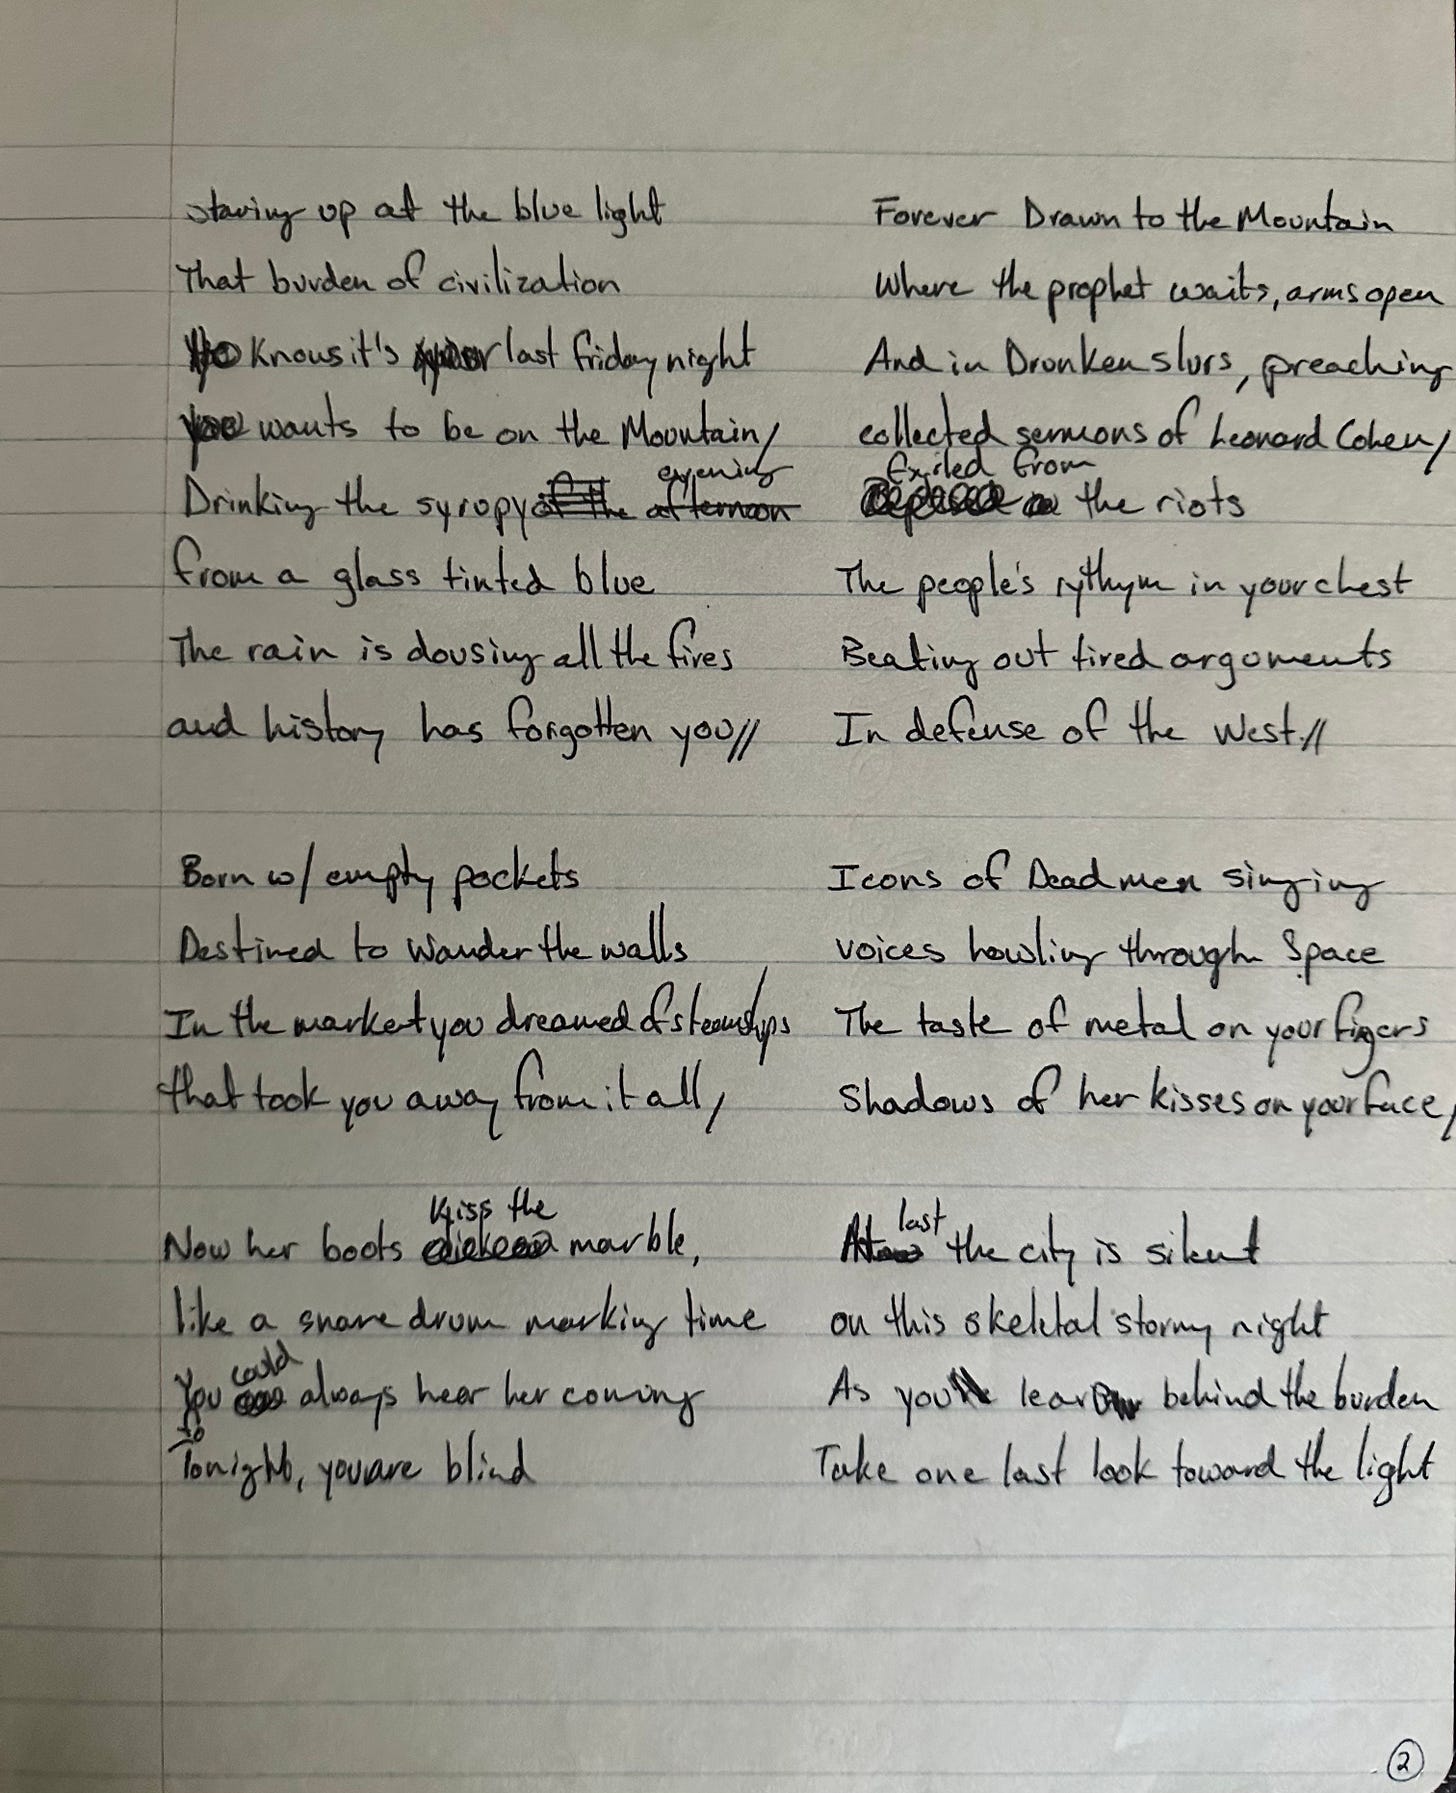 staring up at the blue light
That burden of civilization
knows it's last friday night
wants to be on the Mountain/
Drinking the syrupy ~~of the afternoon~~ evening
from a glass tinted blue
The rain is dousing all the fires
and history has forgotten you//
Born w/ empty pockets
Destined to wander the walls
In the market you dreamed of steamships
that took you away from it all/
Now her boots kiss the marble,
like a snare drum marking time
You could always hear her coming
Tonight, you are blind
Forever Drawn to the Mountain
Where the prophet waits, arms open
And in Drunken slurs, preaching
collected sermons of Leonard Cohen/
Exiled from the riots
The people's rythym in your chest
Beating out tired arguments
In defense of the West.//
Icons of Dead men singing
voices howling through Space
The taste of metal on your figers
Shadows of her kisses on your face/
At last the city is silent
on this skeletal stormy night
As you lean behind the burden
Take one last look toward the light
2